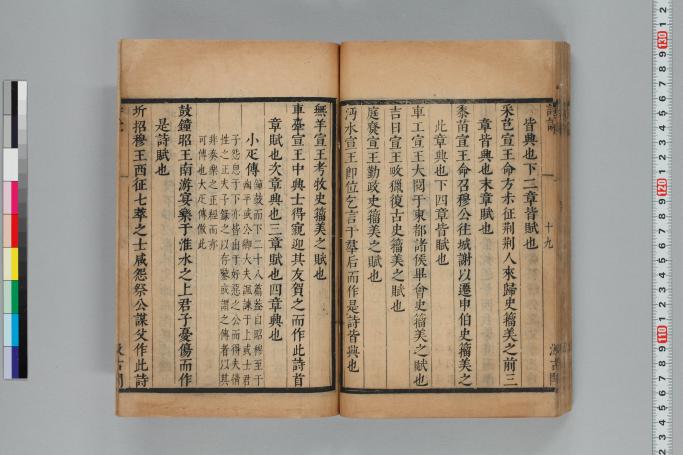 皆興也下二章皆賦也
采芑宣王命方叔征荆荆人來歸史籀美之前三
章皆興也末章賦也
黍苗宣王命召穆公往城謝以遷申伯史籀美之
此章興也下四章皆賦也
車工宣王大閱于東都諸侯畢會史籀美之賦也
吉日宣王畋獵復古史籀美之賦也
庭燎宣王勤政史籀美之賦也
沔水宣王即位乞言于羣后而作是詩皆興也
十九
無羊宣王考牧史籀美之賦也
車舝宣王中興士得寵迎其友賀之而作此詩首
章賦也次章興也三章賦也四章興也
小疋傳
鼓鐘昭王南游宴樂于淮水之上君子憂傷而作
是詩賦也
圻招穆王西征七萃之士咸怨祭公謀父作此詩
汲古閣
130
120
110